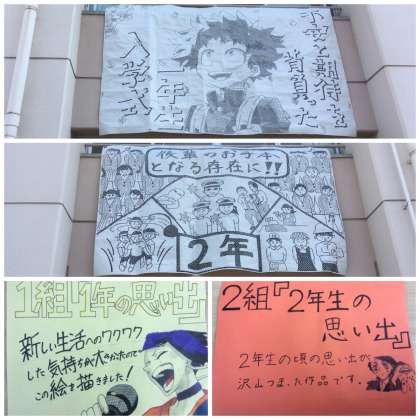 不安と期待を
背負った
一年生
入学式
後輩のお手本
となる存在に!!
2年
1組『1年の思い出』
新しい生活へのワクワク
した気持ちが大きかったので
この絵を描きました!
2組『2年生の
思い出』
2年生の頃の思い出が
沢山つまった作品です。